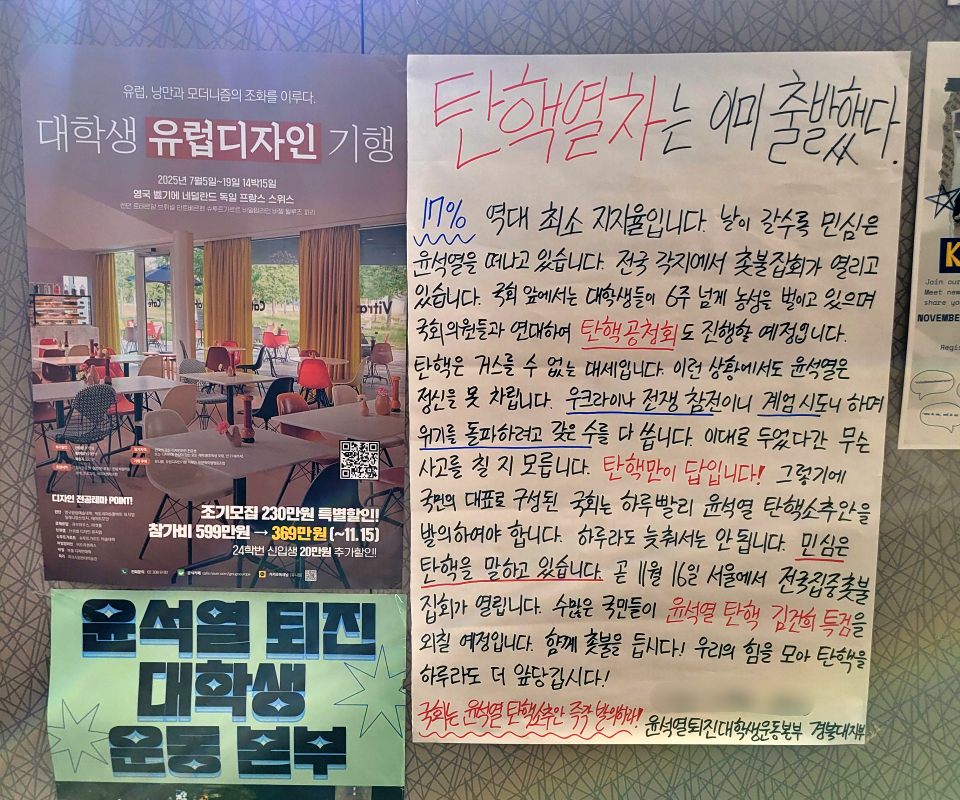 유럽, 낭만과 모더니즘의 조화를 이루다.
대학생 유럽디자인 기행
2025년 7월5일~19일 14박15일
영국 벨기에 네덜란드 독일 프랑스 스위스
Vitra
디자인 전공테마 POINT!
조기모집 230만원 특별할인!
참가비 599만원 → 369만원 (~11.15)
24학번 신입생 20만원 추가할인!!
윤석열 퇴진
대학생
운동 본부
탄핵열차는 이미 출발했다.
17% 역대 최소 지지율입니다. 날이 갈수록 민심은
윤석열을 떠나고 있습니다. 전국 각지에서 촛불집회가 열리고
있습니다. 국회 앞에서는 대학생들이 6주 넘게 농성을 벌이고 있으며
국회의원들과 연대하여 탄핵공청회도 진행할 예정입니다.
탄핵은 거스를 수 없는 대세입니다. 이런 상황에서도 윤석열은
정신을 못 차립니다. 우크라이나 전쟁 참전이니 계엄 시도니 하며
위기를 돌파하려고 갖은 수를 다 씁니다. 이대로 두었다간 무슨
사고를 칠 지 모릅니다. 탄핵만이 답입니다! 그렇기에
국민의 대표로 구성된 국회는 하루빨리 윤석열 탄핵소추안을
발의하여야 합니다. 하루라도 늦춰서는 안 됩니다. 민심은
탄핵을 말하고 있습니다. 곧 11월 16일 서울에서 전국집중촛불
집회가 열립니다. 수많은 국민들이 윤석열 탄핵 김건희 특검을
외칠 예정입니다. 함께 촛불을 듭시다! 우리의 힘을 모아 탄핵을
하루라도 더 앞당깁시다!
국회는 윤석열 탄핵소추안 즉각 발의하라!
윤석열퇴진대학생운동본부 경북대지부
K
Join our
Meet new
share you
NOVEMBE
Regis